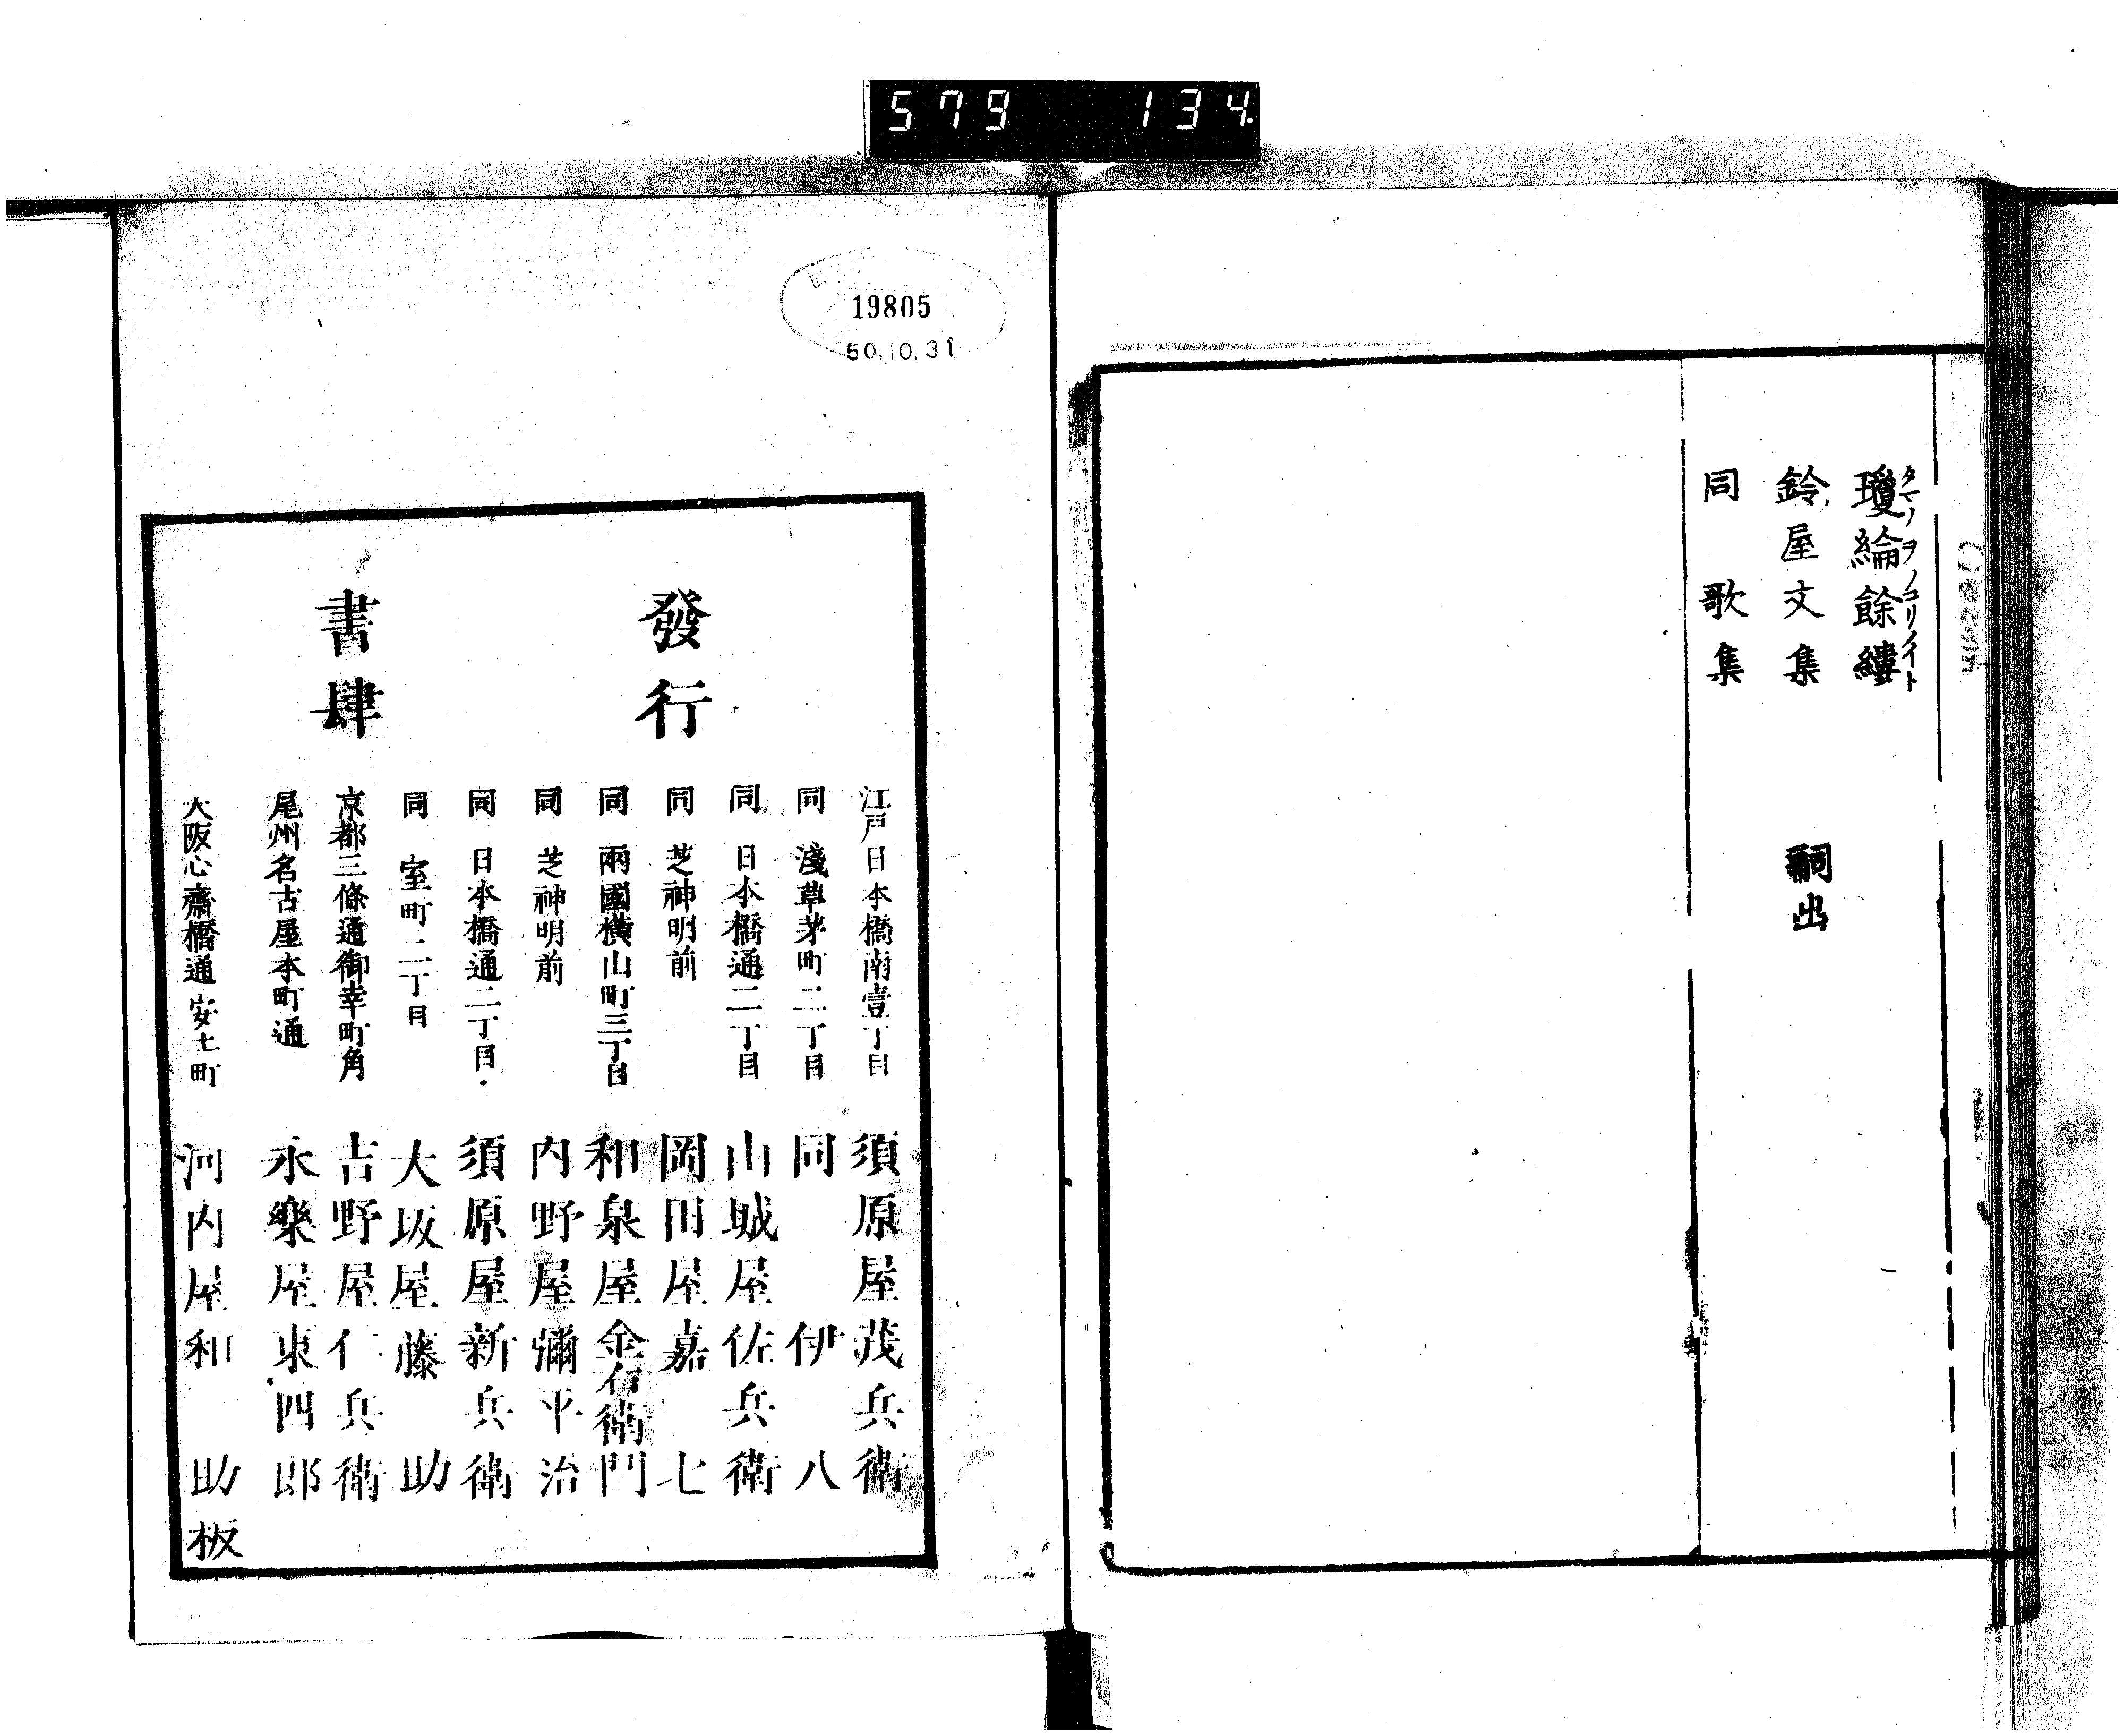 579 134.
瓊綸餘縷
タマノヲノコリノイト
鈴屋文集 嗣出
同 歌集
19805
50.10.31
發行
書肆
江戸日本橋南壹丁目 須原屋茂兵衛
同 淺草茅町二丁目 同 伊八
同 日本橋通二丁目 山城屋佐兵衛
同 芝神明前 岡田屋嘉七
同 兩國橫山町三丁目 和泉屋金右衛門
同 芝神明前 内野屋彌平治
同 日本橋通二丁目 須原屋新兵衛
同 室町二丁目 大坂屋藤助
京都三條通御幸町角 吉野屋仁兵衛
尾州名古屋本町通 永樂屋東四郎
大阪心齋橋通安土町 河内屋和助板